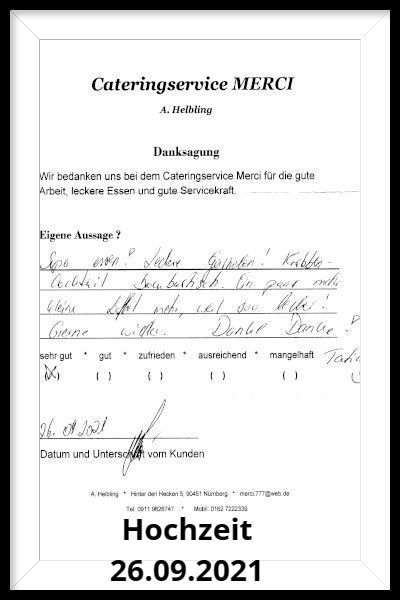 Cateringservice MERCI
A. Helbling
Danksagung
Wir bedanken uns bei dem Cateringservice Merci für die gute
Arbeit, leckere Essen und gute Servicekraft.
Eigene Aussage ?
essen! Leckere ! Krabben-
cocktail Bombastisch. Ein paar mehr
kleine Löffel mehr, weil soo lecker!
Gerne wieder. Danke Danke!
sehr gut * gut * zufrieden * ausreichend * mangelhaft
(X) ( ) ( ) ( ) ( )
26. 09 2021
Datum und Unterschrift vom Kunden
A. Helbling * Hinter den Hecken 5, 90451 Nürnberg * merci.777@web.de
Tel: 0911 9626747 * Mobil: 0162 7222339
Hochzeit
26.09.2021